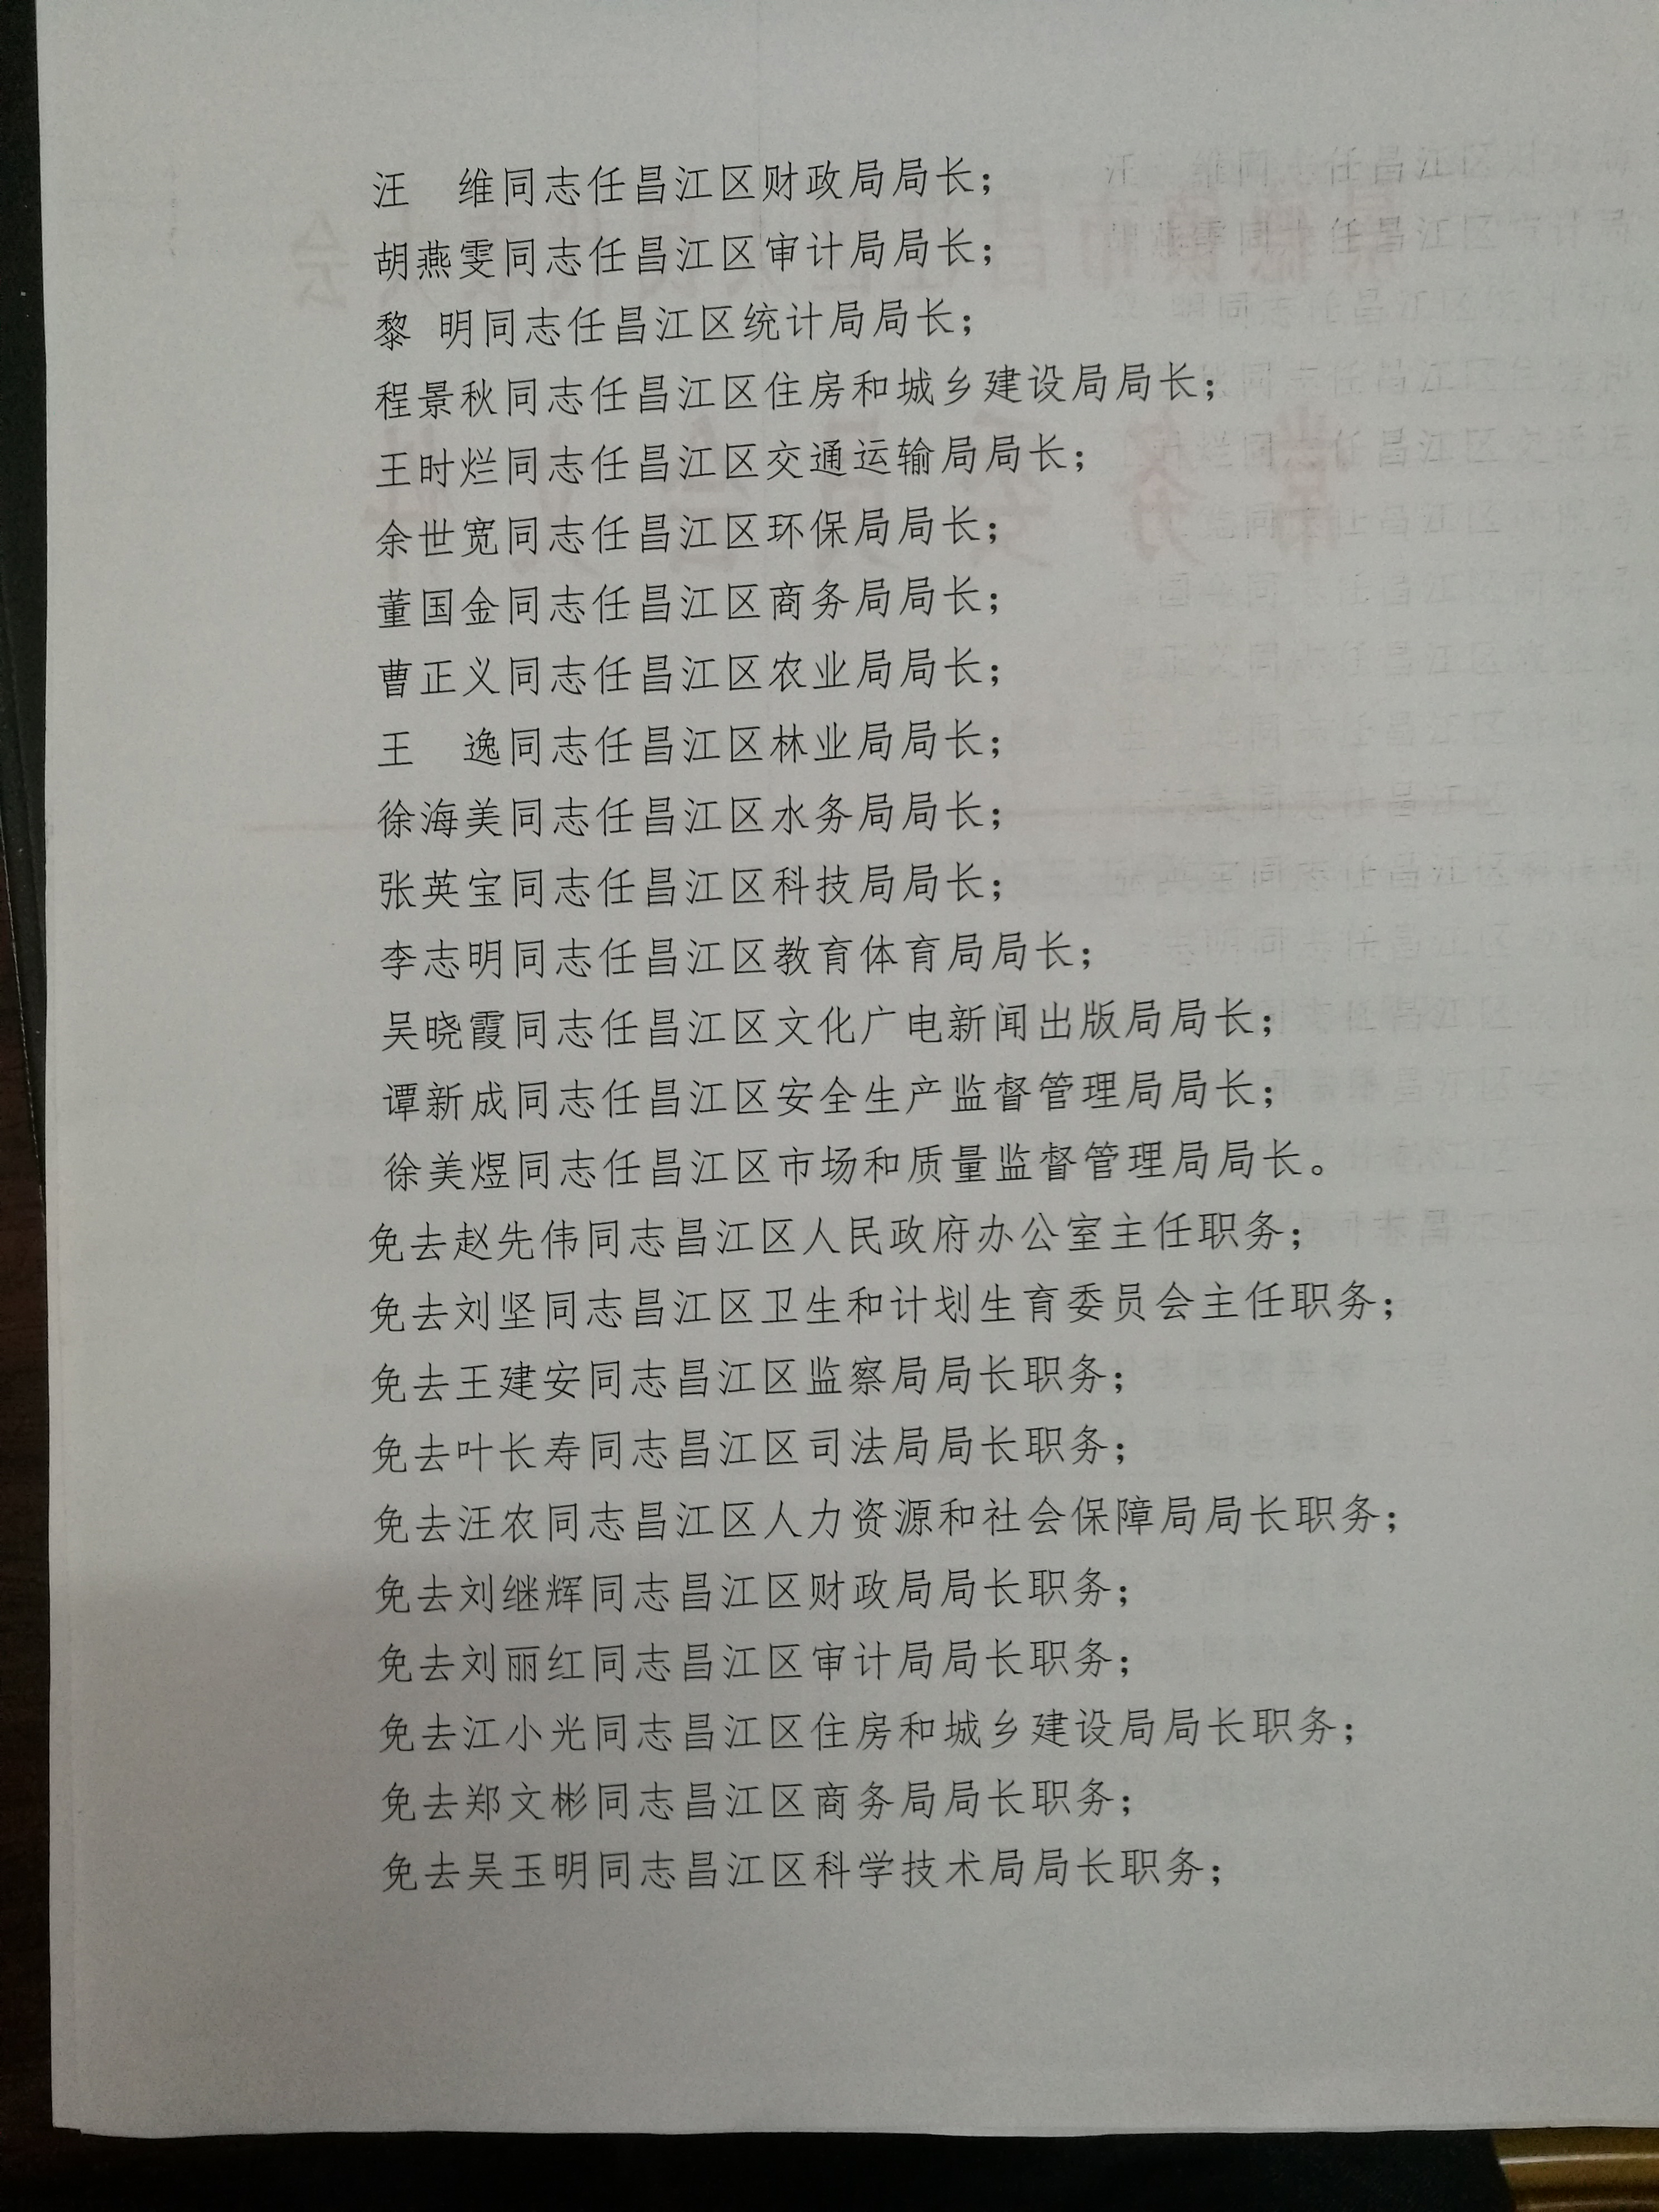 汪　维同志任昌江区财政局局长；
胡燕雯同志任昌江区审计局局长；
黎 明同志任昌江区统计局局长；
程景秋同志任昌江区住房和城乡建设局局长；
王时烂同志任昌江区交通运输局局长；
余世宽同志任昌江区环保局局长；
董国金同志任昌江区商务局局长；
曹正义同志任昌江区农业局局长；
王　逸同志任昌江区林业局局长；
徐海美同志任昌江区水务局局长；
张英宝同志任昌江区科技局局长；
李志明同志任昌江区教育体育局局长；
吴晓霞同志任昌江区文化广电新闻出版局局长；
谭新成同志任昌江区安全生产监督管理局局长；
徐美煜同志任昌江区市场和质量监督管理局局长。
免去赵先伟同志昌江区人民政府办公室主任职务；
免去刘坚同志昌江区卫生和计划生育委员会主任职务；
免去王建安同志昌江区监察局局长职务；
免去叶长寿同志昌江区司法局局长职务；
免去汪农同志昌江区人力资源和社会保障局局长职务；
免去刘继辉同志昌江区财政局局长职务；
免去刘丽红同志昌江区审计局局长职务；
免去江小光同志昌江区住房和城乡建设局局长职务；
免去郑文彬同志昌江区商务局局长职务；
免去吴玉明同志昌江区科学技术局局长职务；